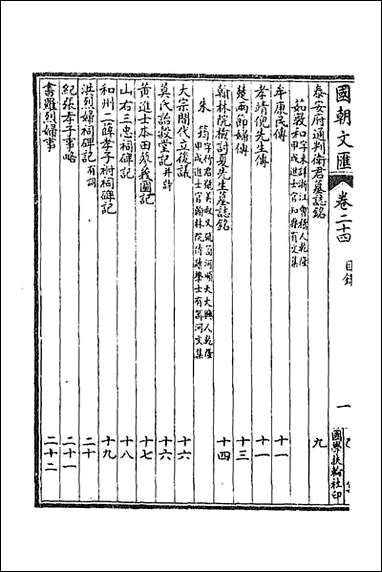 國朝文匯 卷二十四 目錄 一 國學扶輪社印
泰安府通判衛君墓誌銘 九
茹敦和 字未詳浙江會稽人乾隆甲戌進士官知縣有文集
牟康民傳 十一
孝靖倪先生傳 十一
楚兩節婦傳 十三
翰林院檢討夏先生墓誌銘 十四
朱筠 字竹君號美叔又號笥河順天大興人乾隆甲戌進士官翰林院侍讀學士有笥河文集
大宗間代立後議 十六
莫氏詒穀堂記 并詩 十六
黃進士本田墓義園記 十七
山右三忠祠碑記 十八
和州二薛孝子祔祠碑記 十九
洪烈婦祠碑記 有詞 二十
紀張孝子事略 二十一
書難烈婦事 二十二